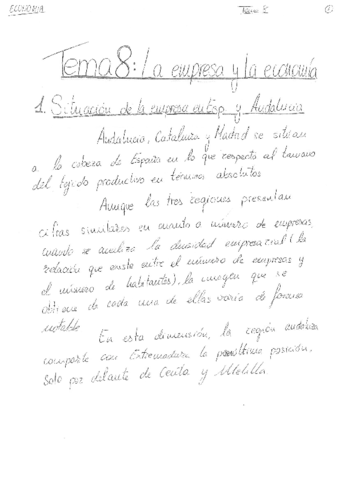 ECONOMÍA Tema 8 ①
Tema 8: La empresa y la economía
1. Situación de la empresa en Esp. y Andalucía
Andalucía, Cataluña y Madrid se sitúan
a la cabeza de España en lo que respecta al tamaño
del tejido productivo en términos absolutos
Aunque las tres regiones presentan
cifras similares en cuanto a número de empresas,
cuando se analiza la densidad empresarial (la
relación que existe entre el número de empresas y
el número de habitantes), la imagen que se
obtiene de cada una de ellas varía de forma
notable.
En esta dimensión, la región andaluza
comparte con Extremadura la penúltima posición,
solo por delante de Ceuta y Melilla